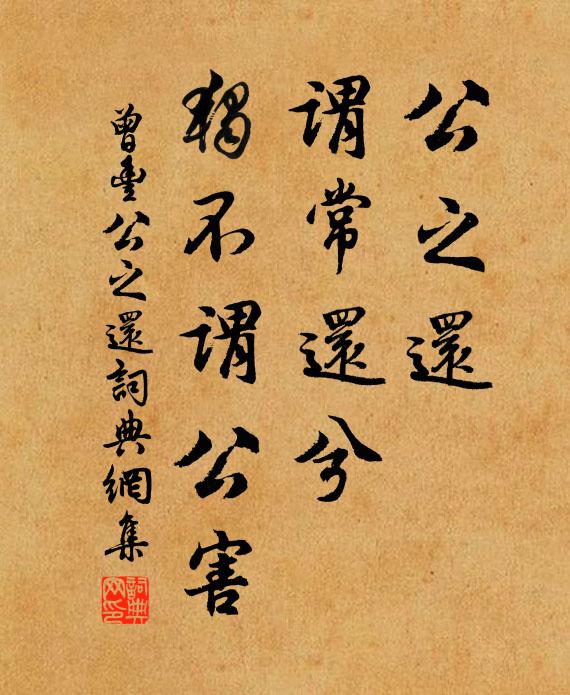 公之還
謂常還兮
獨不謂公害
曾豐公之還詞典網集
詞典
网印